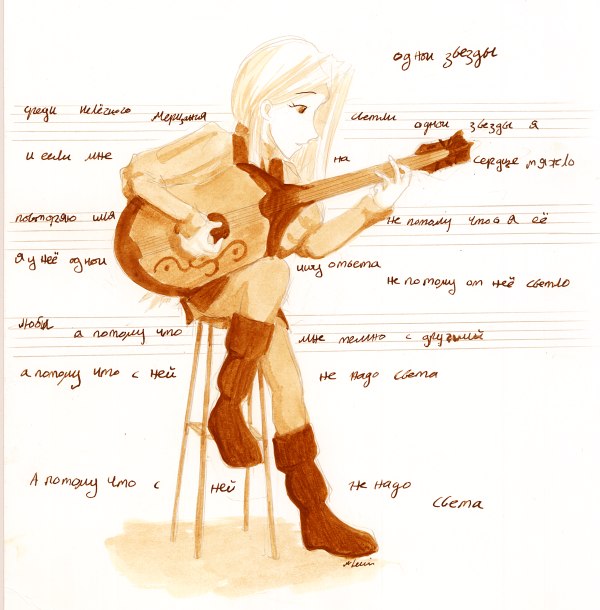 однои звезды
среди нелёсного мерцания светли однои звезды я
и если мне на сердце тяжело
повторяю имя не потому что я её
я у неё однои ищу ответа не потому от неё светло
любы а потому что мне темно с другимий
а потому что с ней не надо света
А потому что с ней не надо света